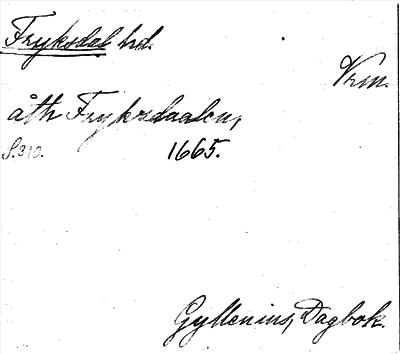 Fryksdal hd.
Vrm.
åth Fryksdaalen,
S. 310. 1665.
Gyllenius, Dagbok.